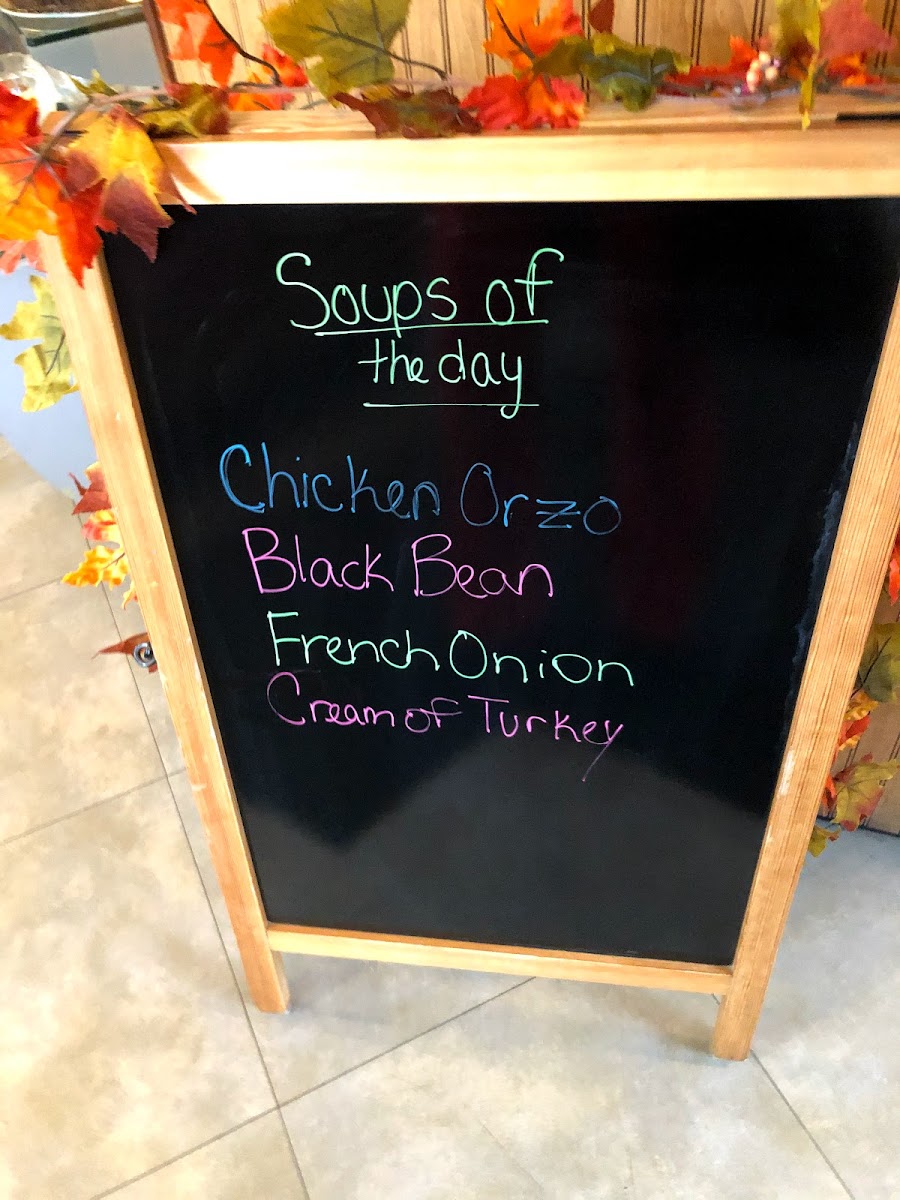 Soups of
the day
Chicken Orzo
Black Bean
French Onion
Cream of Turkey